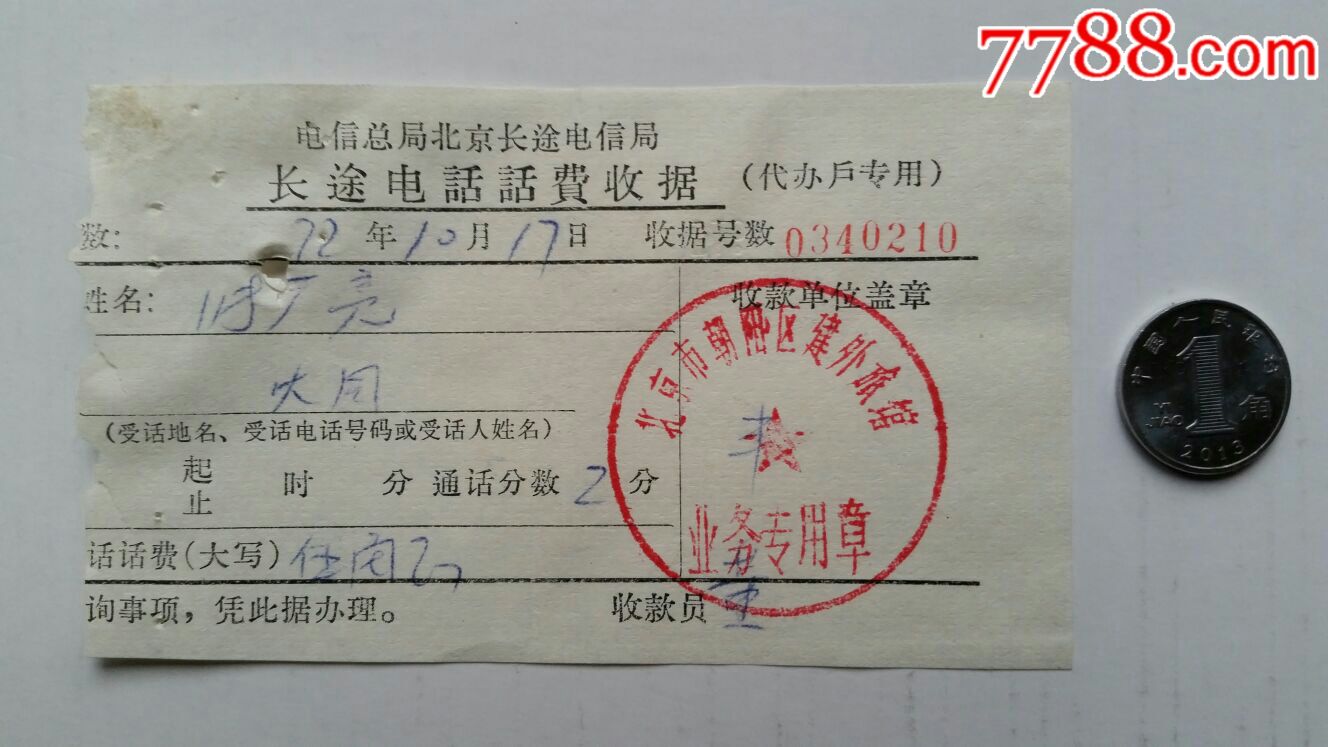 7788.com
电信总局北京长途电信局
长途电話話費收据 (代办戶专用)
数: 72年10月17日 收据号数 0340210
姓名: 时广亮 收款单位盖章
大同
(受话地名、受话电话号码或受话人姓名)
起
止 时 分 通话分数 2 分
话话费(大写)
询事项，凭此据办理。 收款员
北京市朝阳区建外旅馆
业务专用章
中国人民银行
1
YI JIAO 角
2013